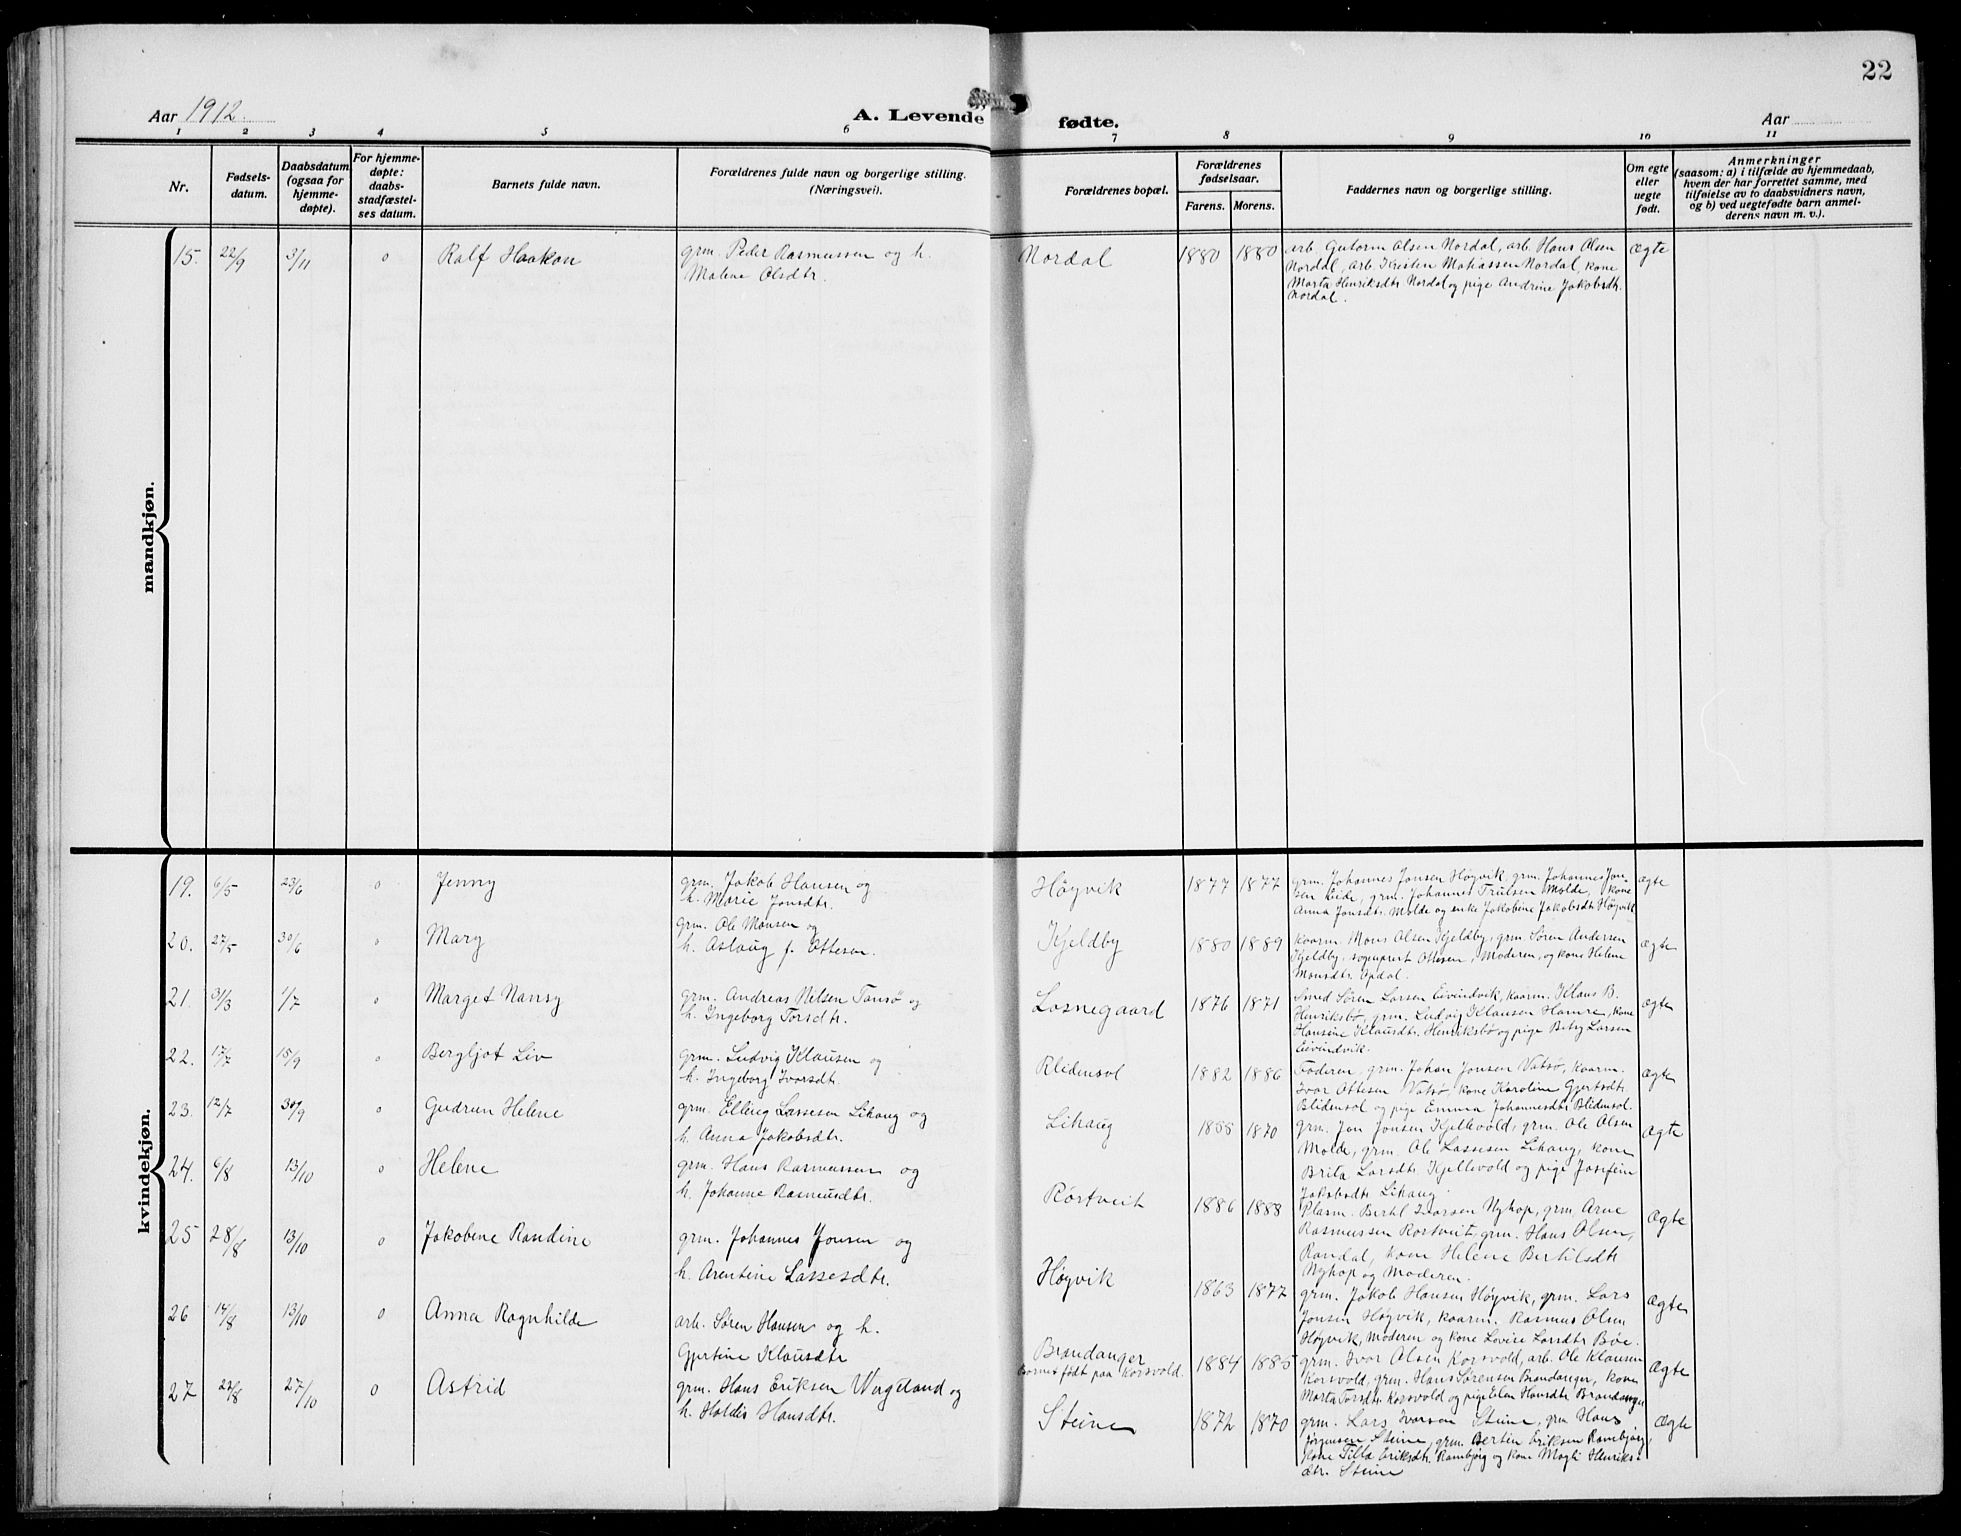 22
Aar 1912.
A. Levende fødte.
Aar
1 2 3 4 5 6 7 8 9 10 11
Nr.
Fødsels-
datum.
Daabsdatum
(ogsaa for
hjemme-
døpte).
For hjemme-
døpte:
daabs-
stadfæstel-
ses datum.
Barnets fulde navn.
Forældrenes fulde navn og borgerlige stilling.
(Næringsvei).
Forældrenes bopæl.
Forældrenes
fødselsaar.
Farens. Morens.
Faddernes navn og borgerlige stilling.
Om egte
eller
uegte
født.
Anmerkninger
(saasom: a) i tilfælde av hjemmedaab,
hvem der har forrettet samme, med
tilføielse av to daabsvidners navn,
og b) ved uegtefødte barn anmel-
derens navn m. v.).
mandkjøn.
15. 22/9 3/11 0 Ralf Haakon
grm. Peder Rasmussen og h.
Malene Olsdtr.
Nordal 1880 1880
arb. Gutorm Olsen Nordal, arb. Hans Olsen
Nordal, arb. Kristen Matiassen Nordal, kone
Marta Henriksdtr Nordal og pige Andrine Jakobsdtr.
Nordal.
Ægte
kvindekjøn.
19. 6/5 23/6 0 Jenny
grm. Jakob Hansen og
h. Marie Jonsdtr.
Høyvik 1877 1877
grm. Johannes Jonsen Høyvik, grm. Johannes Jon-
sen Eide, grm. Johannes Trulsen Molde, kone
Anna Jonsdtr. Molde og enke Jakobine Jakobsdtr Høyvik
ægte
20. 27/5 30/6 0 Mary
grm. Ole Monsen og
h. Aslaug f. Ottesen.
Kjeldby 1880 1889
kaarm. Mons Olsen Kjeldby, grm. Søren Andersen
Kjeldby, Ottesen, Moderen, og kone Helene
Monsdtr. Opdal.
Ægte
21. 31/3 1/7 0 Marget Nansy
grm. Andreas Nilsen Tansø og
h. Ingeborg Torsdtr.
Losnegaard 1876 1871
Smed Søren Larsen Eivindvik, kaarm. Klaus B.
Henriksbø, grm. Ludvig Klausen Hamre, kone
Hansine Klausdtr. Henriksbø og pige Betsy Larsen
Eivindvik.
Ægte
22. 17/7 15/9 0 Bergljot Liv
grm. Ludvig Klausen og
h. Ingeborg Ivarsdtr.
Blidensol 1882 1886
Faderen, grm. Johan Jonsen Vatsø, kaarm.
Ivar Ottesen Vatsø, kone Karoline Gjertsdtr.
Blidensol og pige Emma Johannesdtr Blidensol.
Ægte
23. 12/7 30/9 0 Gudrun Helene
grm. Elling Lassesen Lihaug og
h. Anna Jakobsdtr.
Lihaug 1858 1870
grm. Jon Jonsen Kjellevold, grm. Ole Olsen
Molde, grm. Ole Lassesen Lihaug, kone
Brita Larsdtr Kjellevold og pige Josefine
Jakobsdtr Lihaug.
Ægte
24. 6/8 13/10 0 Helene
grm. Hans Rasmussen og
h. Johanne Rasmusdtr.
Rostveit 1886 1888
Plasm. Bertil Ivarsen Nyhop, grm. Arne
Rasmussen Rostveit, grm. Hans Olsen,
Randal, kone Helene Bertilsdtr
Nyhop og Moderen.
Ægte
25 28/8 13/10 0 Jakobene Randine
grm. Johannes Jonsen og
h. Arentine Lassesdtr.
Høyvik 1863 1877
grm. Jakob Hansen Høyvik, grm. Lars
Jonsen Høyvik, kaarm. Rasmus Olsen
Høyvik, Moderen og kone Lovise Larsdtr Bøe.
Ægte
26 14/8 13/10 0 Anna Ragnhilde
arb. Søren Hansen og h.
Gjertine Klausdtr
Brandanger
barnet født paa Korsvold. 1884 1885
grm. Ivar Olsen Korsvold, arb. Ole Klausen
Korsvold, grm. Hans Sørensen Brandanger, kone
Marta Torsdtr Korsvold og pige Elen Hansdtr Brandanger
Ægte
27 22/8 27/10 0 Astrid
grm. Hans Eriksen Wergeland og
h. Haldis Hansdtr.
Steine 1872 1870
grm. Lars Ivarsen Steine, grm Hans
Jørgensen Steine, grm. Bertin Eriksen Rambjørg,
kone Tilla Eriksdtr. Rambjørg og kone Magli Henriks-
dtr. Steine
Ægte